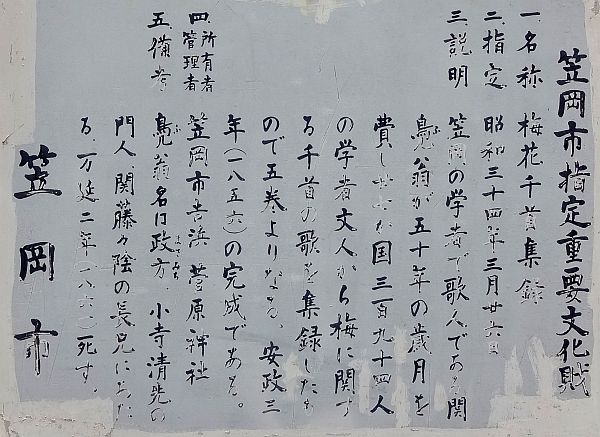 笠岡市指定重要文化財
一、名称 梅花千首集録
二、指定 昭和三十四年三月廿六日
三、説明
笠岡の学者で歌人である関
鳧翁が五十年の歳月を
費し 国三百九十四人
の学者文人から梅に関す
る千首の歌を集録したも
ので五巻よりなる。安政三
年(一八五六)の完成である。
四、所有者 管理者 笠岡市吉浜 菅原神社
五、備考 鳧翁名は政方。小寺清先の
門人、関藤藤陰の長兄にあた
る。万延二年(一八六一)死す。
笠岡市